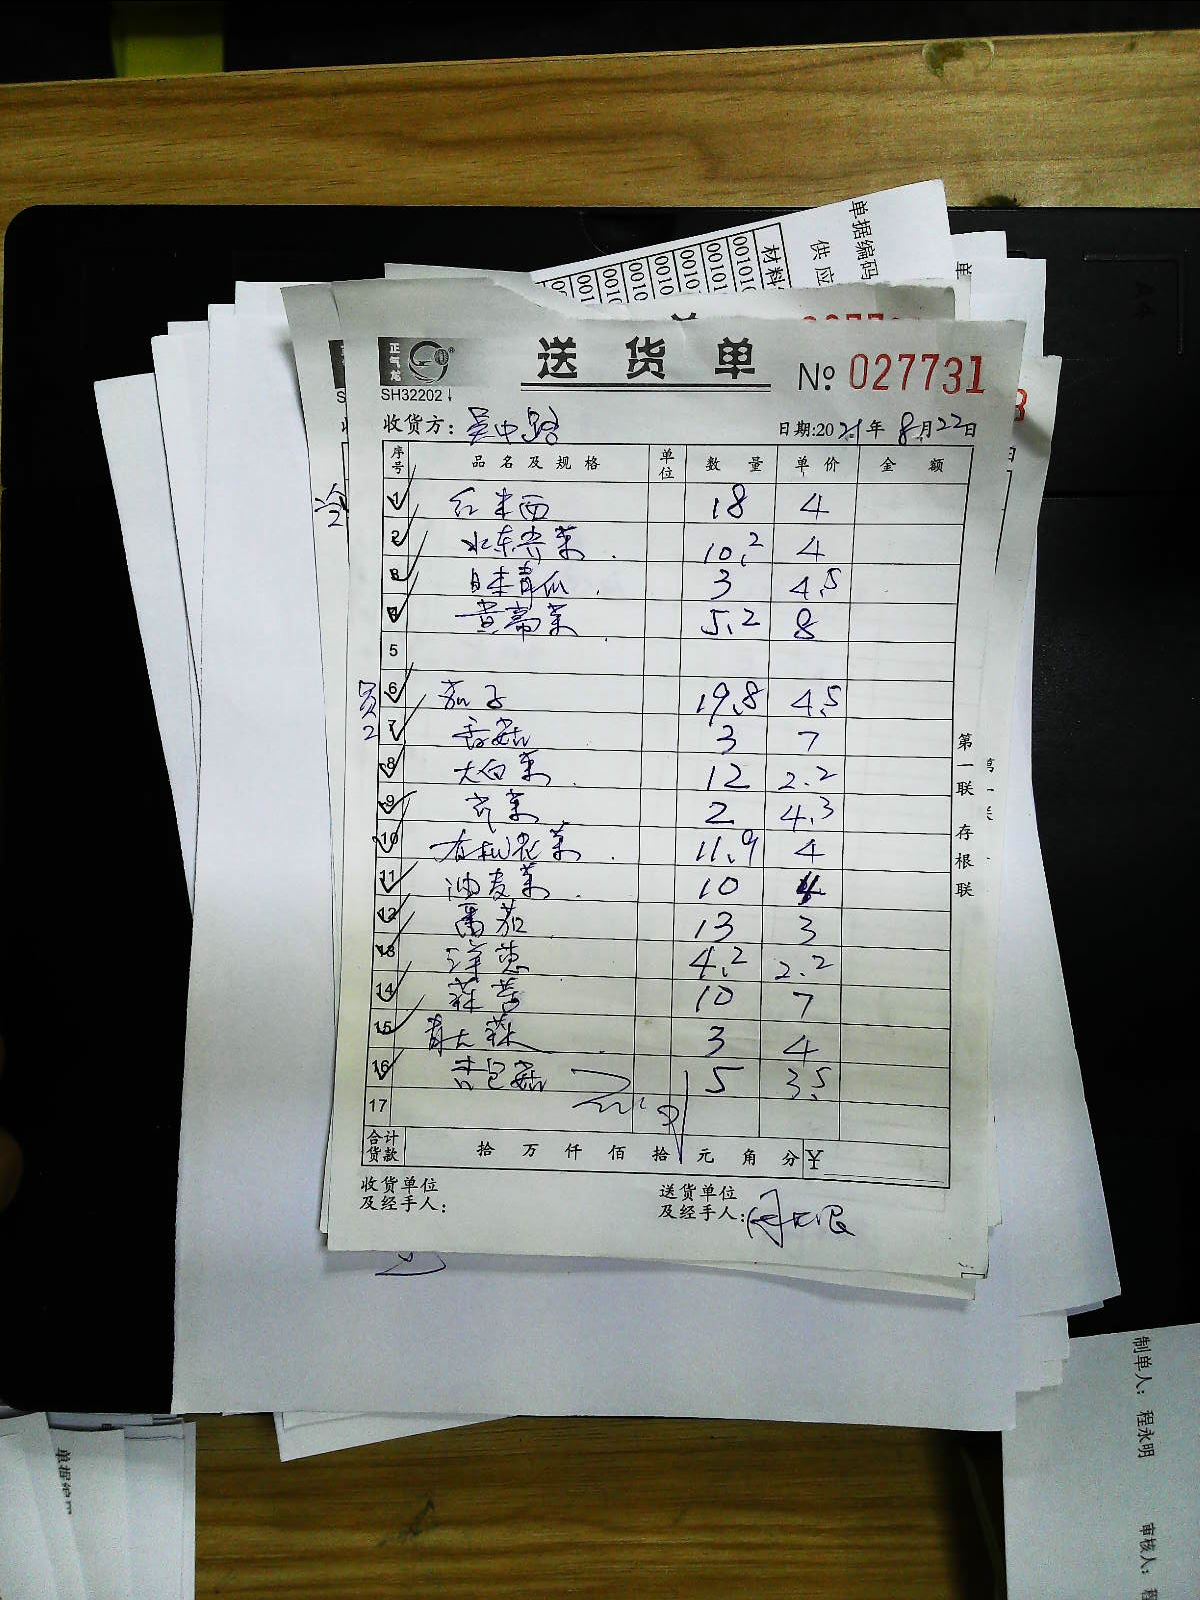 单据编码
供应
材料
001010
00101
0010
0010
0010
001
送货单
№ 027731
正气龙
SH32202
收货方：吴中路
日期:2021年8月22日
序号 品名及规格 单位 数量 单价 金额
冷
1 红米西 18 4
2 水东芥菜 10.2 4
3 日本青瓜 3 4.5
4 黄帝菜 5.2 8
5
员2
6 茄子 19.8 4.5
7 香菇 3 7
8 大白菜 12 2.2
9 芹菜 2 4.3
10 有机花菜 11.9 4
11 油麦菜 10 4
12 番茄 13 3
13 洋葱 4.2 2.2
14 蒜苔 10 7
15 青大蒜 3 4
16 杏包菇 5 3.5
17
合计货款 拾万仟佰拾元角分 ¥
收货单位及经手人：
送货单位及经手人：
第一联 存根联
制单人：程永明
审核人：程